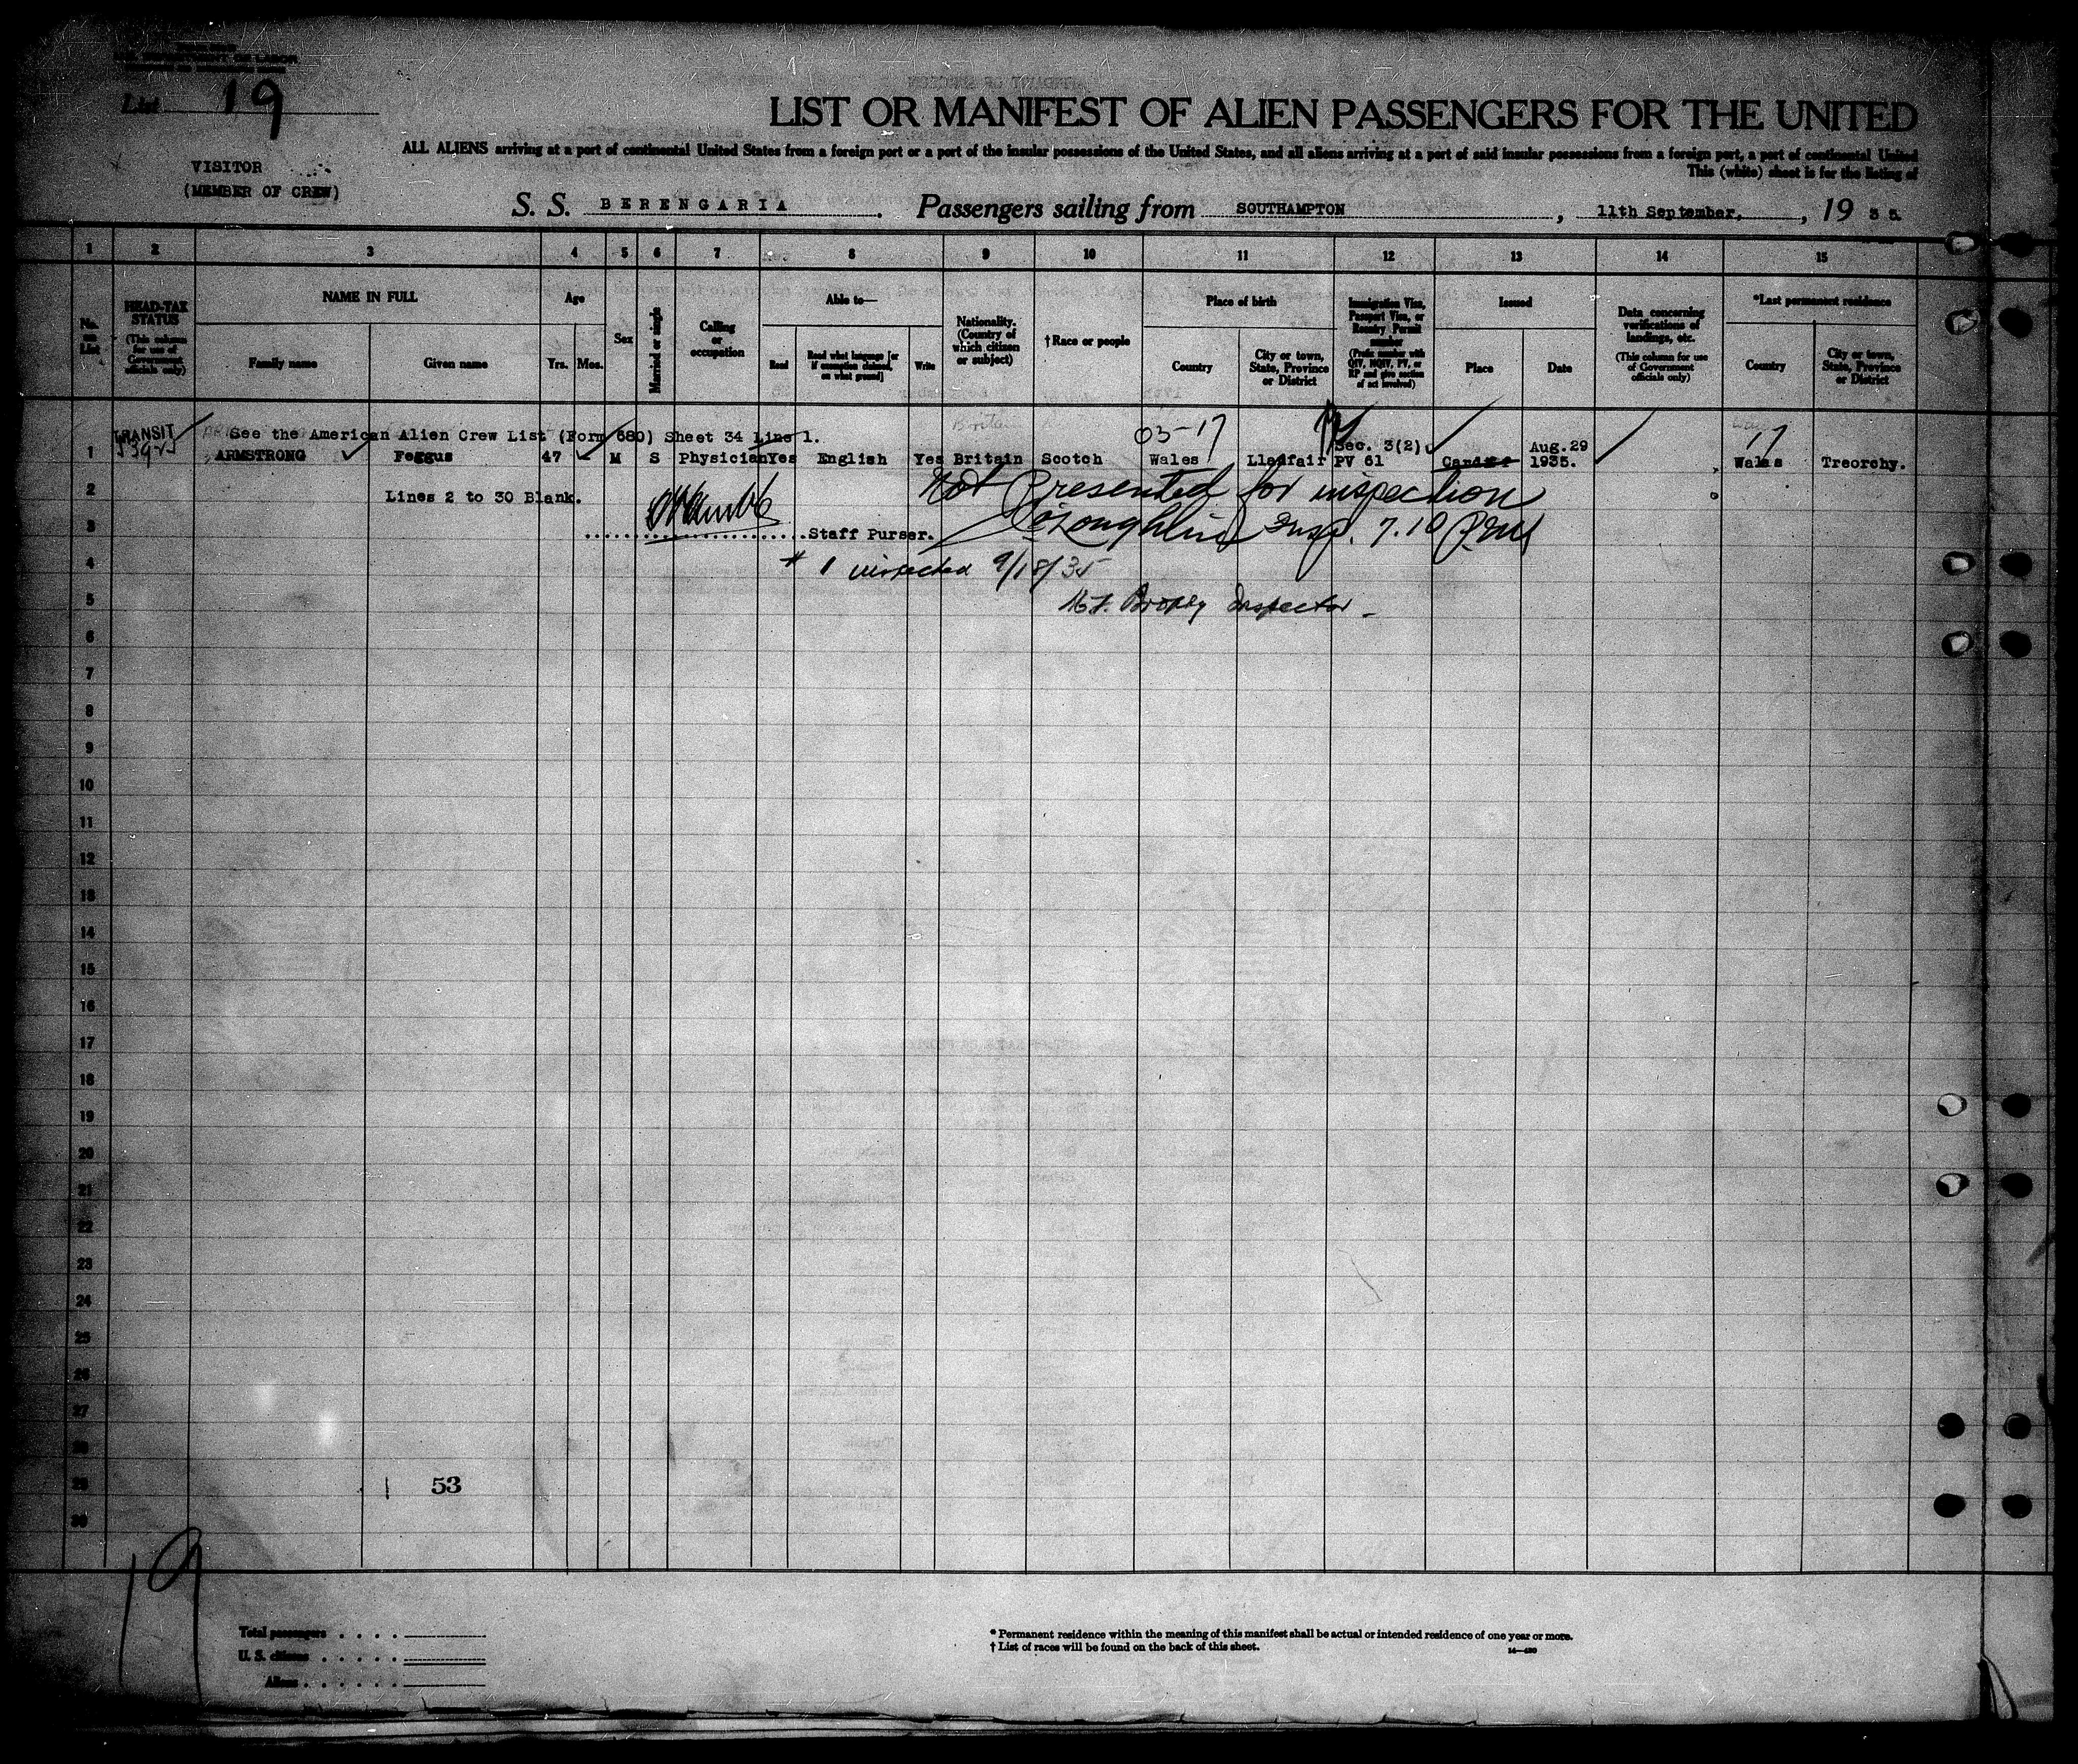 List 19
LIST OR MANIFEST OF ALIEN PASSENGERS FOR THE UNITED
ALL ALIENS arriving at a port of continental United States from a foreign port or a port of the insular possessions of the United States, and all aliens arriving at a port of said insular possessions from a foreign port, a port of continental United
This (white) sheet is for the listing of
VISITOR
(MEMBER OF CREW)
S. S. BERENGARIA. Passengers sailing from SOUTHAMPTON, 11th September, , 19 35.
1 2 3 4 5 6 7 8 9 10 11 12 13 14 15
No. on List
HEAD-TAX STATUS
(This column for use of Government officials only)
NAME IN FULL
Family name
Given name
Age
Yrs. Mos.
Sex
Married or single
Calling or occupation
Able to—
Read
Read what language [or if exemption claimed, on what ground]
Write
Nationality. (Country of which citizen or subject)
† Race or people
Place of birth
Country
City or town, State, Province or District
Immigration Visa, Passport Visa, or Reentry Permit number
(Prefix number with QIV, NQIV, PV, or RP and give section of act involved)
Issued
Place
Date
Data concerning verifications of landings, etc.
(This column for use of Government officials only)
*Last permanent residence
Country
City or town, State, Province or District
TRANSIT
See the American Alien Crew List (Form 680) Sheet 34 Line 1.
03-17
Sec. 3(2)
Aug.29
17
1 ARMSTRONG Feggus 47 M S Physician Yes English Yes Britain Scotch Wales Llanfair PV 61 Cardiff 1935. Wales Treorchy.
2 Lines 2 to 30 Blank.
Not Presented for inspection
3 Staff Purser.
O'Loughlin Insp. 7.10 P.M
4 # 1 inspected 9/18/35
5 Inspector
6
7
8
9
10
11
12
13
14
15
16
17
18
19
20
21
22
23
24
25
26
27
28
29 53
30
19
Total passengers
U. S. citizens
Aliens
* Permanent residence within the meaning of this manifest shall be actual or intended residence of one year or more.
† List of races will be found on the back of this sheet.